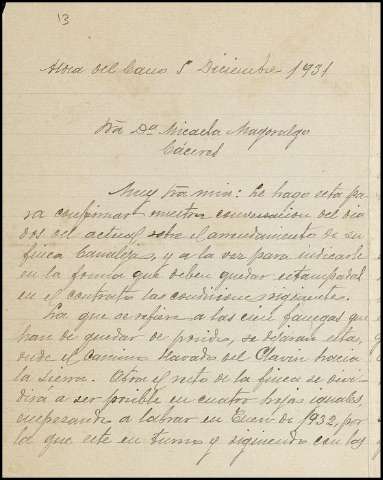 13
Aldea del Cano 5 Diciembre 1931
Sra Dª Micaela Mayoralgo
Cáceres
Muy Sra mia: Le hago esta pa
ra confirmar nuestra conversacion del dia
dos del actual sobre el arrendamiento de su
finca Canaleja, y a la vez para indicarle
en la forma que deben quedar estampadas
en el contrato las condiciones siguientes.
La que se refiere a las cien fanegas que
han de quedar de posido, se dejaran estas,
desde el Camino llamado del Clavin hacia
la Sierra. Otra el resto de la finca se divi
dirá a ser posible en cuatro hojas iguales,
empezando a labrar en Enero de 1932, por
la que este en turno y siguiendo con las